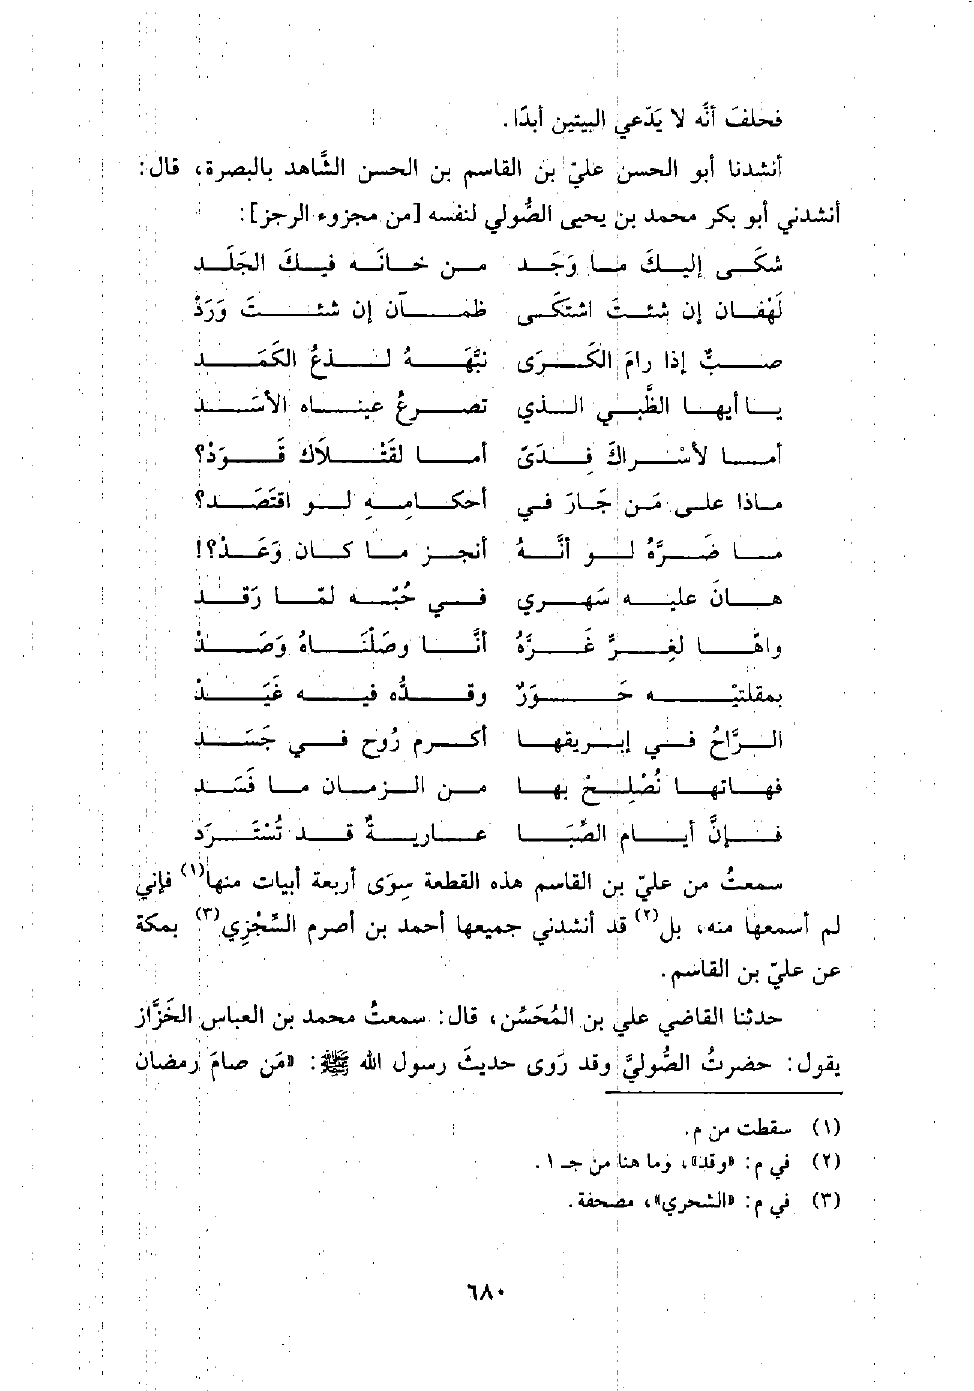 فحلفَ أنَّه لا يَدّعي البيتين أبدًا.
أنشدنا أبو الحسن عليّ بن القاسم بن الحسن الشَّاهد بالبصرة، قال:
أنشدني أبو بكر محمد بن يحيى الصُّولي لنفسه [من مجزوء الرجز]:
شكَى إليكَ ما وَجَد من خانَه فيكَ الجَلَد
لَهْفان إن شئتَ اشتكَى ظمآن إن شئتَ وَرَدْ
صبٌّ إذا رامَ الكَرَى نبَّهَهُ لذعُ الكَمَد
يا أيها الظَّبي الذي تصرعُ عيناه الأسَد
أما لأسْراكَ فِدَىً أما لقَتْلاك قَوَدْ؟
ماذا على مَن جَارَ في أحكامِهِ لو اقتَصَد؟
ما ضَرَّهُ لو أنَّهُ أنجز ما كان وَعَدْ؟!
هانَ عليه سَهري في حُبّه لمّا رَقَد
واهًا لغِرٍّ غَرَّهُ أنَّا وصَلْنَاهُ وَصَدْ
بمقلتيْه حَوَرٌ وقدُّه فيه غَيَدْ
الرَّاحُ في إبريقها أكرم رُوح في جَسَد
فهاتها نُصْلِحْ بها من الزمان ما فَسَد
فإنَّ أيام الصِّبَا عاريةٌ قد تُسْتَرَد
سمعتُ من عليّ بن القاسم هذه القطعة سِوَى أربعة أبيات منها(١) فإني
لم أسمعها منه، بل(٢) قد أنشدني جميعها أحمد بن أصرم السِّجْزِي(٣) بمكة
عن عليّ بن القاسم.
حدثنا القاضي علي بن المُحَسِّن، قال: سمعتُ محمد بن العباس الخَزَّاز
يقول: حضرتُ الصُّوليَّ وقد رَوى حديثَ رسول الله ﷺ: «مَن صامَ رمضان
(١) سقطت من م.
(٢) في م: «وقد»، وما هنا من جـ ١.
(٣) في م: «الشحري»، مصحفة.
٦٨٠